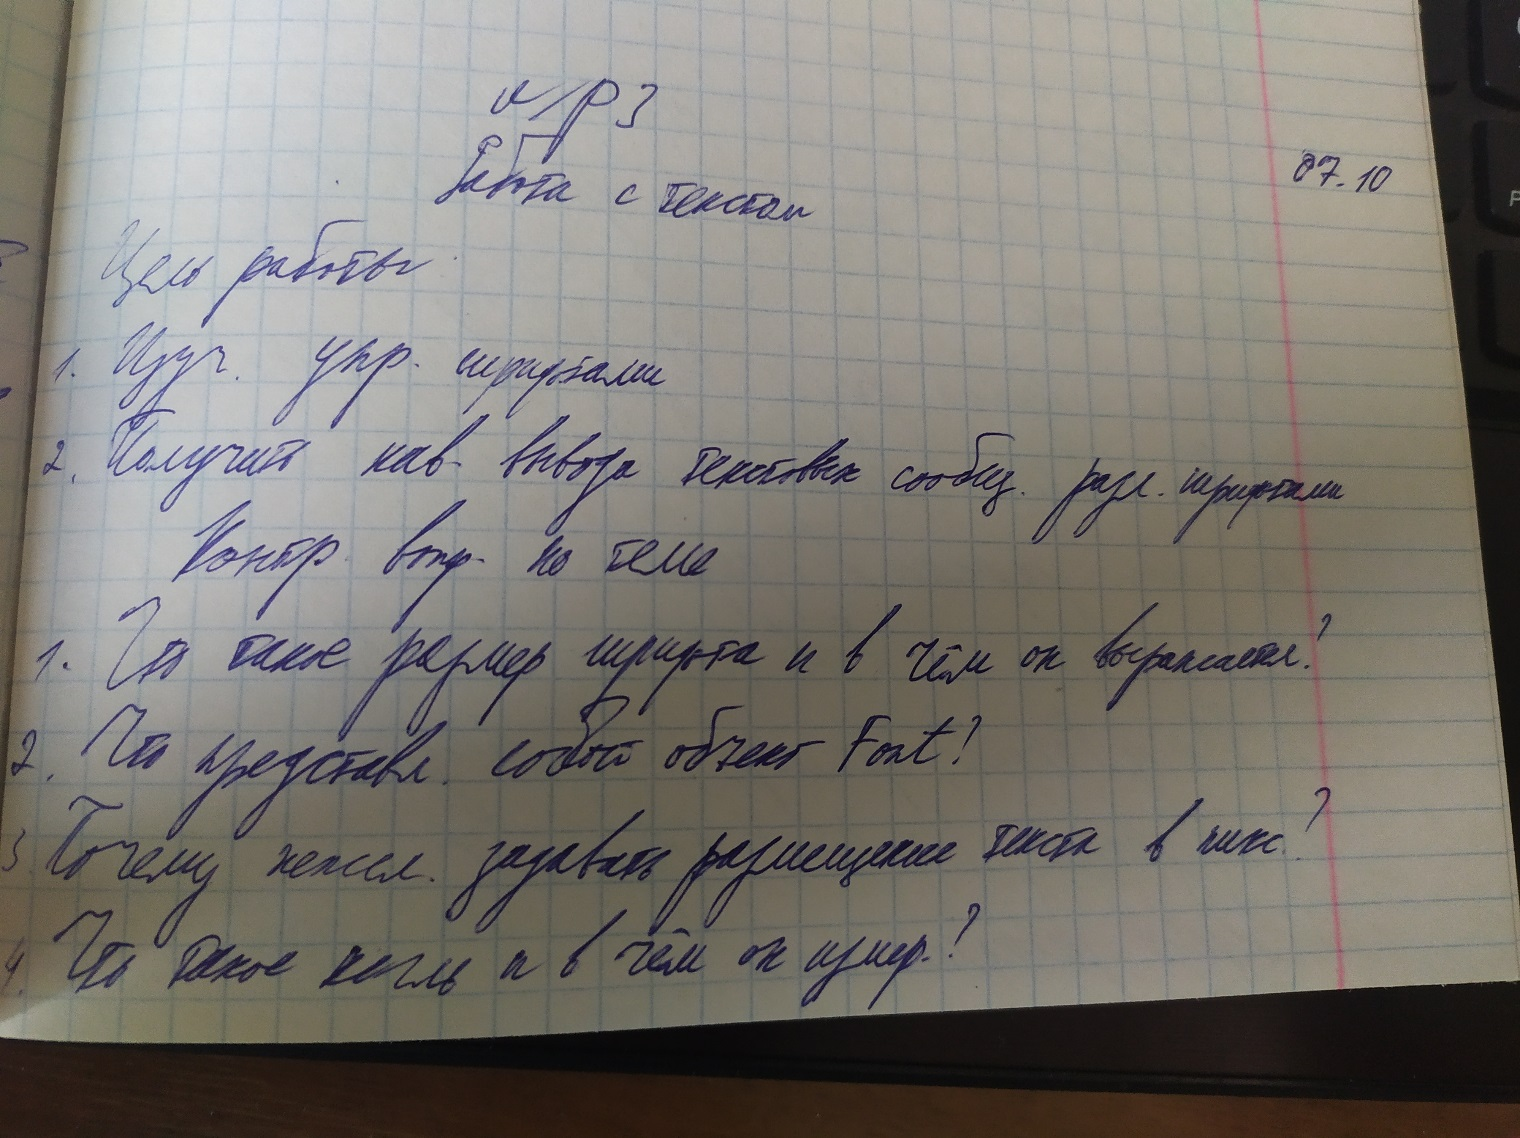 л/р 3
Работа с текстом
07.10
Цель работы
1. Изуч. упр. шрифтами
2. Получить нав. вывода текстовых сообщ. разл. шрифтами
Контр. вопр. по теме
1. Что такое размер шрифта и в чём он выражается?
2. Что представл. собой объект Font?
3. Почему нежел. задавать размещение текста в пикс.?
4. Что такое кегль и в чём он измер.?